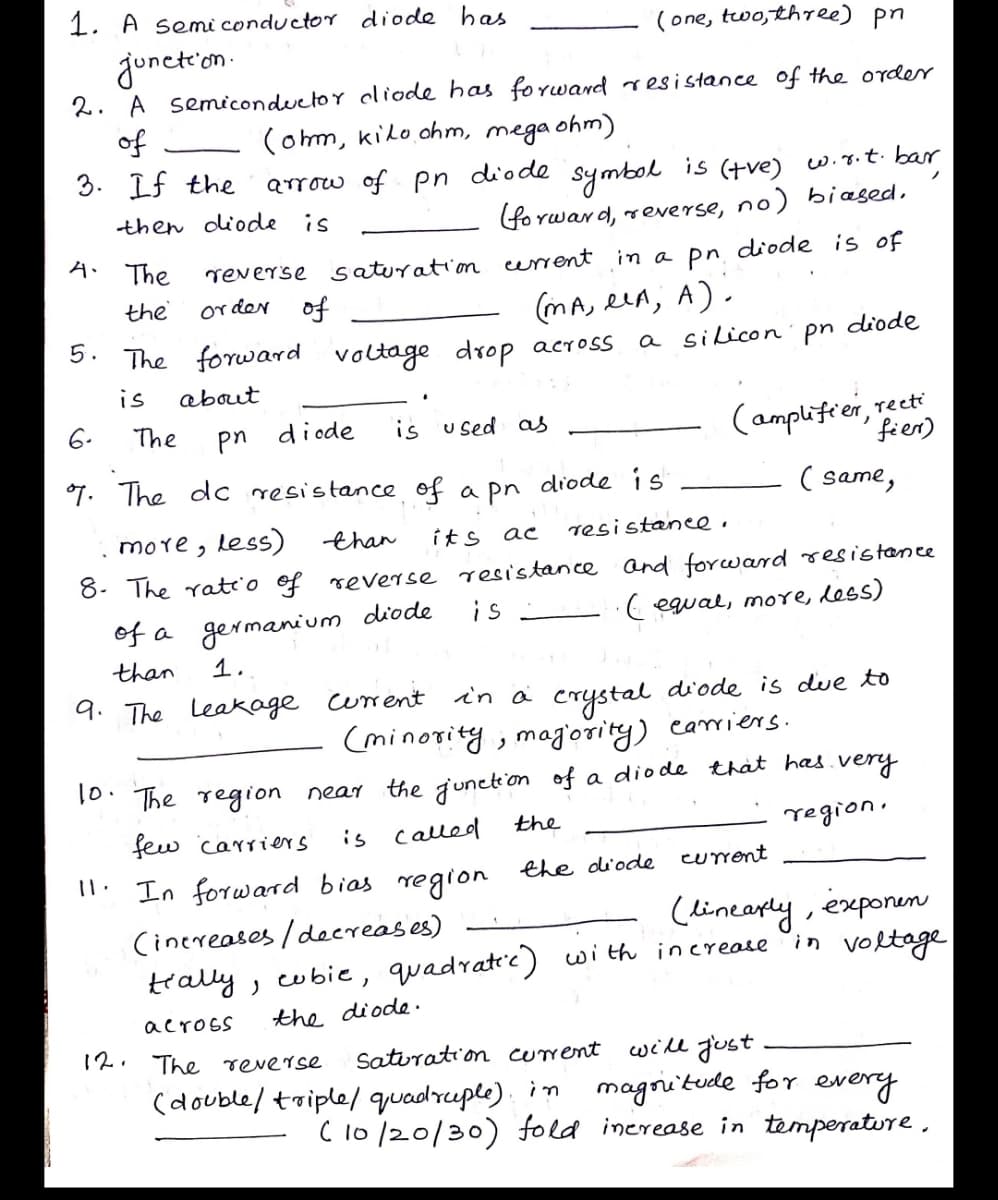 1. A semiconductor diode has ______ (one, two, three) pn
junction.
2. A semiconductor diode has forward resistance of the order
of ____ (ohm, kilo ohm, mega ohm)
3. If the arrow of pn diode symbol is (+ve) w.r.t. bar,
then diode is ______ (forward, reverse, no) biased.
4. The reverse saturation current in a pn diode is of
the order of ________ (mA, μA, A).
5. The forward voltage drop across a silicon pn diode
is about ______.
6. The pn diode is used as ______ (amplifier, recti
fier)
7. The dc resistance of a pn diode is _____ (same,
more, less) than its ac resistance.
8. The ratio of reverse resistance and forward resistance
of a germanium diode is ____ (equal, more, less)
than 1.
9. The leakage current in a crystal diode is due to
__________ (minority, majority) carriers.
10. The region near the junction of a diode that has very
few carriers is called the __________ region.
11. In forward bias region the diode current ________
(increases/decreases) ________ (linearly, exponen
tially, cubic, quadratic) with increase in voltage
across the diode.
12. The reverse saturation current will just ________
(double/triple/quadruple) in magnitude for every
_______ (10/20/30) fold increase in temperature.